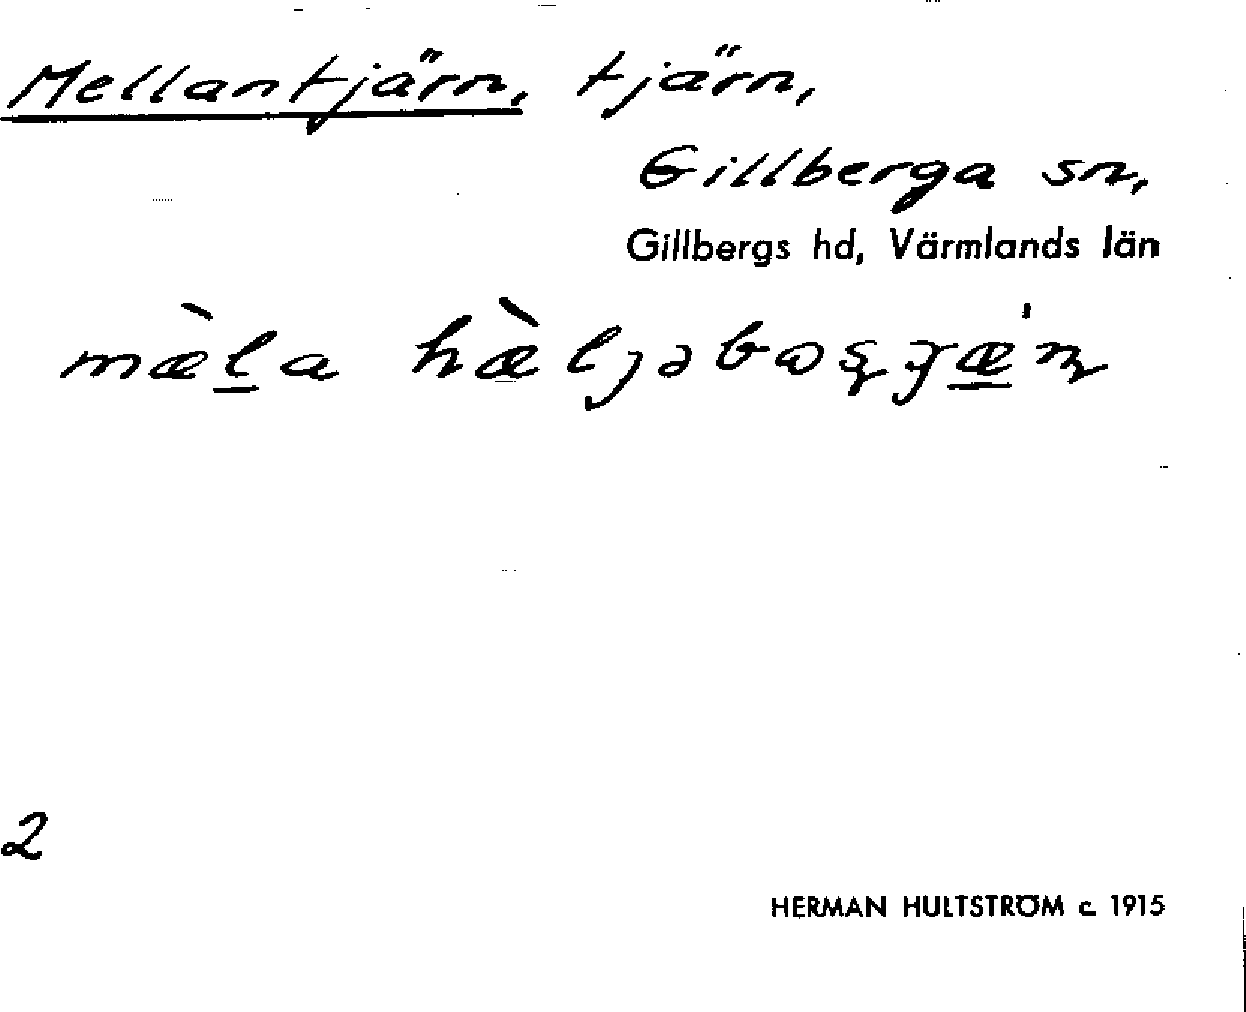 Mellantjärn, tjärn,
Gillberga sn,
Gillbergs hd, Värmlands län
2
HERMAN HULTSTRÖM c. 1915